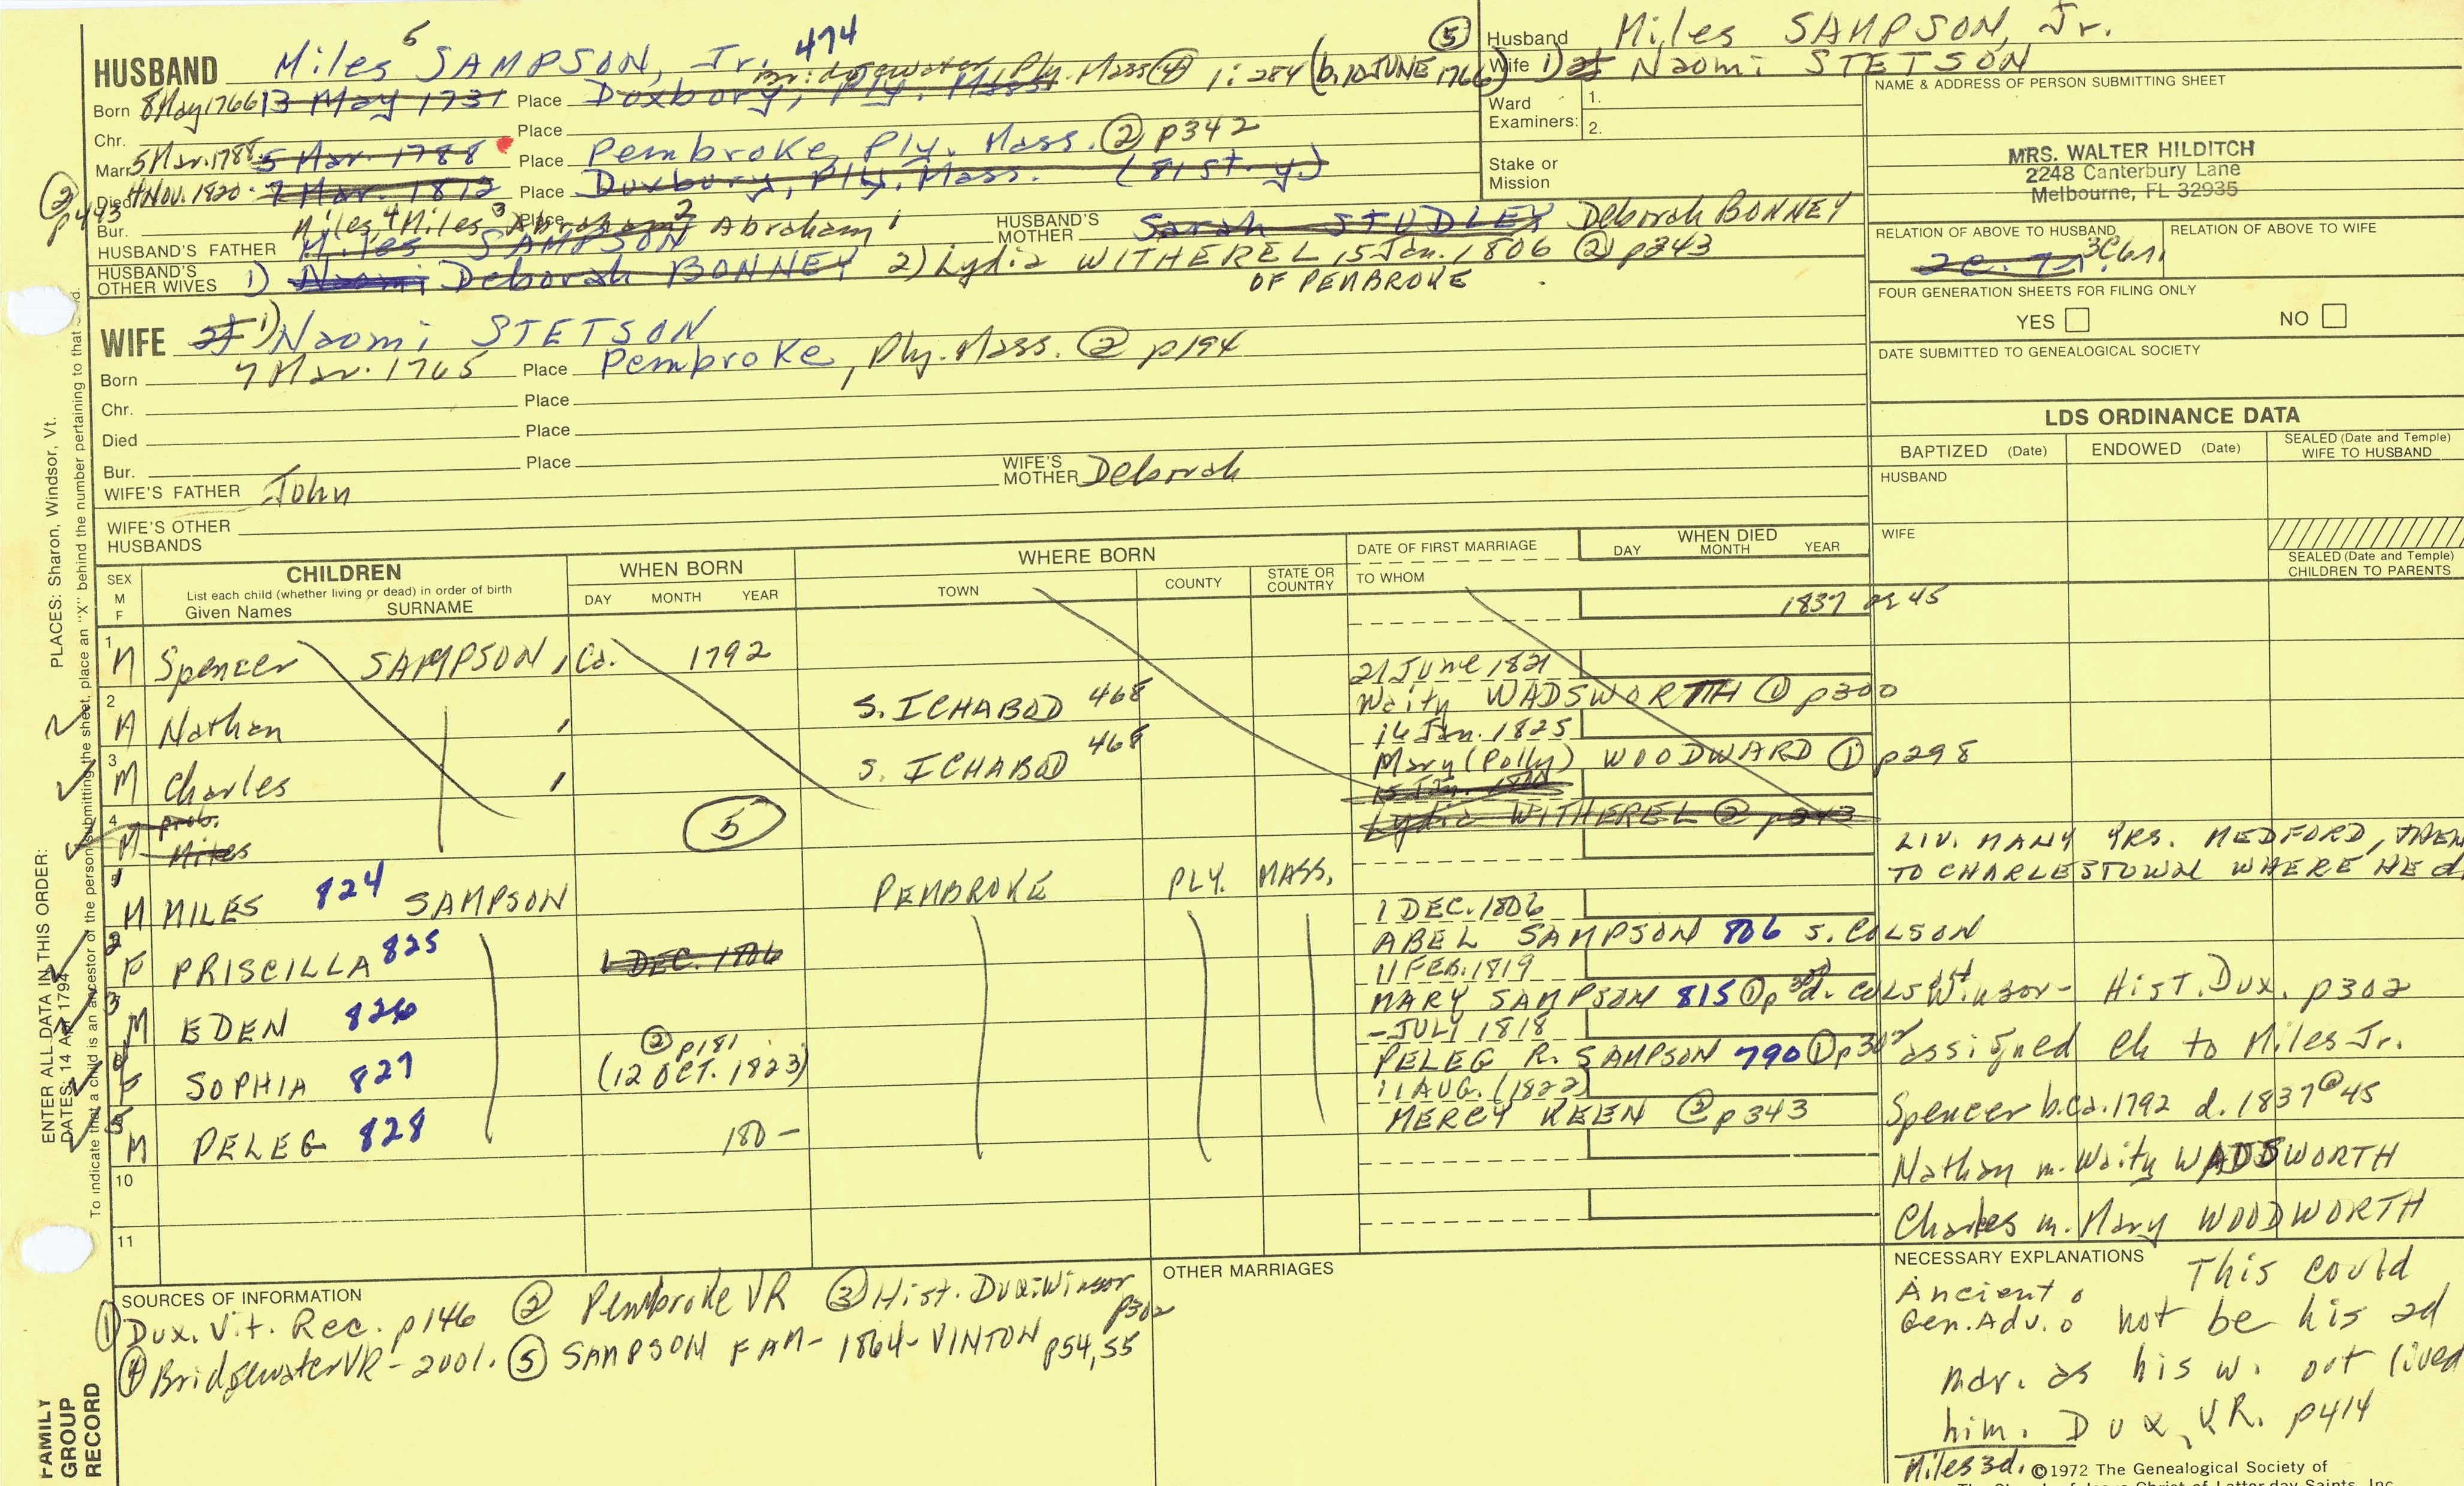 HUSBAND Miles 5 SAMPSON, Jr. 474
Bridgewater, Ply. Mass ④ 1:284 (b. 10 JUNE 1766) ⑤
Born 8 May 1766 13 May 1731 Place Duxbury, Ply. Mass
Chr. Place
Marr 5 Mar. 1788 5 Mar. 1788 Place Pembroke, Ply. Mass. ② p342
② p443 Died 4 Nov. 1820 7 Mar. 1812 Place Duxbury, Ply. Mass. (81st. y)
Bur. Place
Miles,4 Miles3 Abraham,2 Abraham1
HUSBAND'S FATHER Miles SAMPSON HUSBAND'S MOTHER Sarah STUDLEY Deborah BONNEY
HUSBAND'S OTHER WIVES 1) Naomi Deborah BONNEY 2) Lydia WITHEREL 15 Jan. 1806 ② p343
OF PEMBROKE
WIFE 1) Naomi STETSON
Born 7 Mar. 1765 Place Pembroke, Ply. Mass. ② p194
Chr. Place
Died Place
Bur. Place
WIFE'S FATHER John WIFE'S MOTHER Deborah
WIFE'S OTHER HUSBANDS
Husband Miles SAMPSON, Jr.
Wife 1) Naomi STETSON
Ward Examiners: 1.
2.
Stake or Mission
NAME & ADDRESS OF PERSON SUBMITTING SHEET
MRS. WALTER HILDITCH
2248 Canterbury Lane
Melbourne, FL 32935
RELATION OF ABOVE TO HUSBAND RELATION OF ABOVE TO WIFE
3C6n.
FOUR GENERATION SHEETS FOR FILING ONLY
YES NO
DATE SUBMITTED TO GENEALOGICAL SOCIETY
LDS ORDINANCE DATA
BAPTIZED (Date) ENDOWED (Date) SEALED (Date and Temple) WIFE TO HUSBAND
HUSBAND
WIFE
SEALED (Date and Temple) CHILDREN TO PARENTS
SEX M F CHILDREN WHEN BORN WHERE BORN DATE OF FIRST MARRIAGE WHEN DIED
List each child (whether living or dead) in order of birth
Given Names SURNAME DAY MONTH YEAR TOWN COUNTY STATE OR COUNTRY TO WHOM DAY MONTH YEAR
1837 ae 45
1 M Spencer SAMPSON, Ca. 1792
21 June 1821
2 M Nathan S. ICHABOD 468 Waity WADSWORTH ① p300
16 Jan. 1825
3 M Charles S. ICHABOD 468 Mary (Polly) WOODWARD ① p298
15 Jan. 1806
4 M prob. Miles ⑤ Lydia WITHEREL ② p343
LIV. MANY YRS. MEDFORD, THEN
TO CHARLESTOWN WHERE HE d.
1 M MILES 824 SAMPSON PEMBROKE PLY. MASS.
1 DEC. 1806
2 F PRISCILLA 825 1 DEC. 1806 ABEL SAMPSON 806 S. COLSON
11 FEB. 1819
3 M EDEN 826 MARY SAMPSON 815 ① p d. COLS
- JULY 1818
F SOPHIA 827 ② p181 (12 OCT. 1823) PELEG R. SAMPSON 790 ① p302
11 AUG. (1822)
5 M PELEG 828 180- MERCY KEEN ② p343
10
11
Winsor - Hist. Dux. p302
assigned ch to Miles Jr.
Spencer b. ca. 1792 d. 1837 @ 45
Nathan m. Waity WADSWORTH
Charles m. Mary WOODWORTH
SOURCES OF INFORMATION
① Dux. Vit. Rec. p146 ② Pembroke VR ③ Hist. Dux. Winsor p302
④ Bridgewater VR - 2001. ⑤ SAMPSON FAM - 1864 - VINTON p54, 55
OTHER MARRIAGES
NECESSARY EXPLANATIONS
Ancient
Gen. Adv.
This could
not be his 2d
mar. as his w. out lived
him. Dux. VR. p414
Miles 3d.
©1972 The Genealogical Society of
The Church of Jesus Christ of Latter-day Saints, Inc.
PLACES: Sharon, Windsor, Vt.
ENTER ALL DATA IN THIS ORDER:
DATES: 14 Apr 1794
To indicate that a child is an ancestor of the person submitting the sheet, place an "X" behind the number pertaining to that child.
FAMILY
GROUP
RECORD